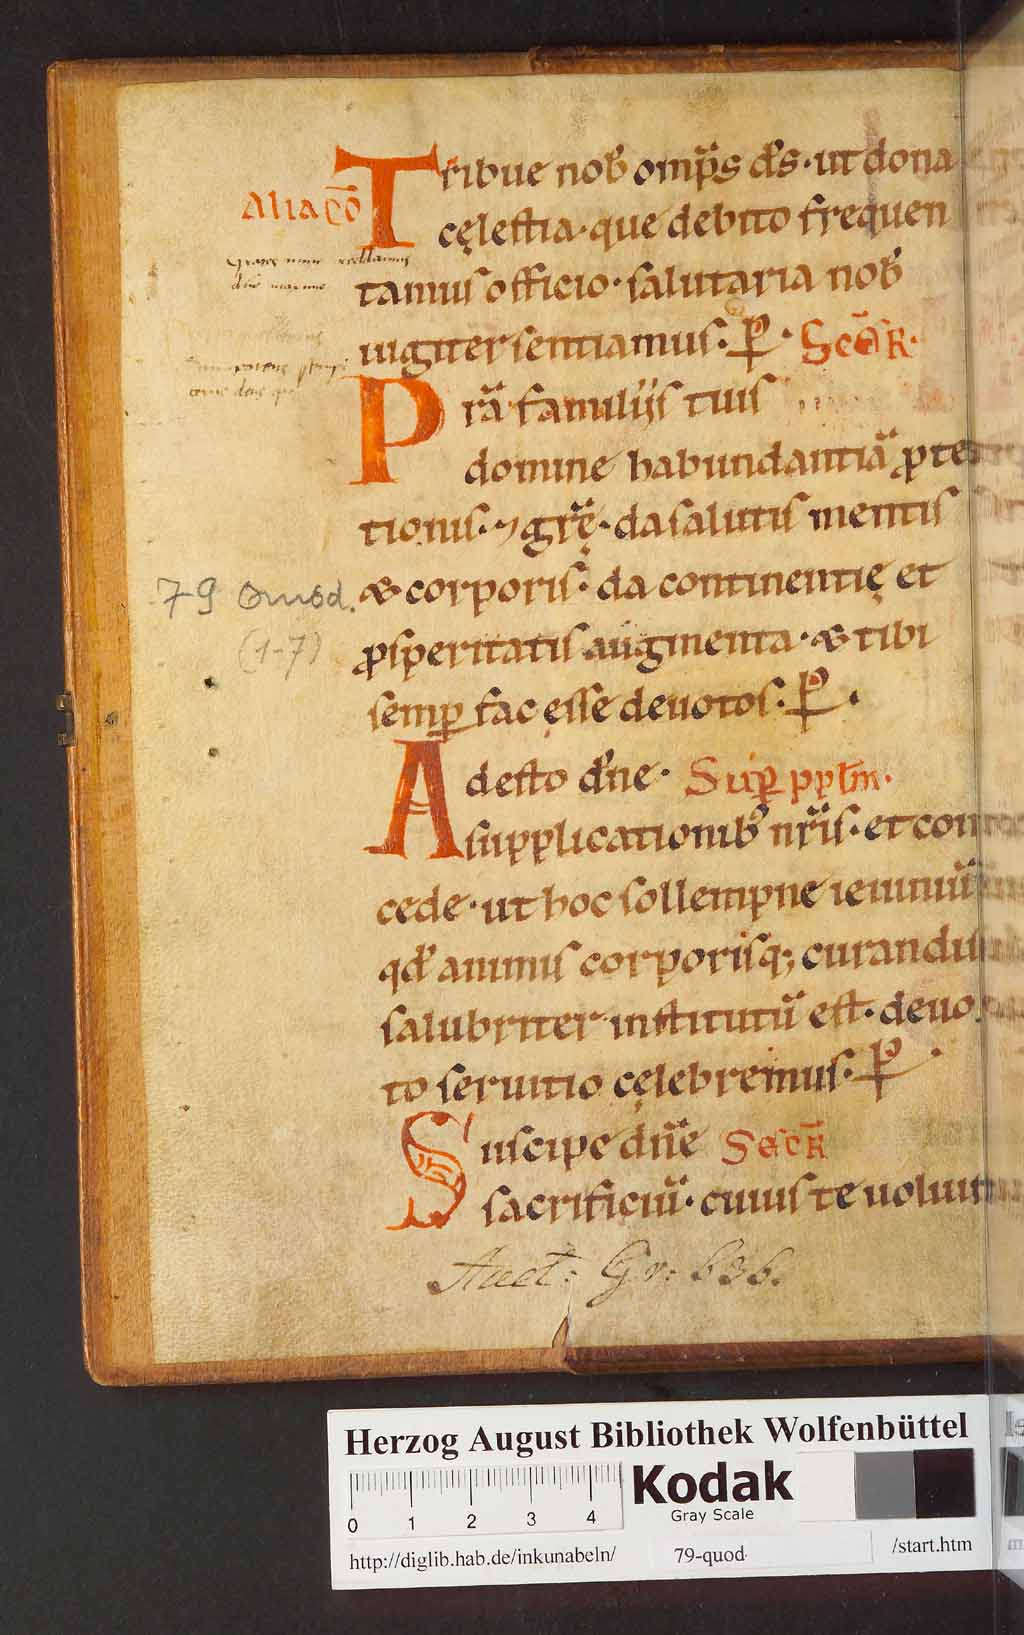 Tribue nob̄ omp̄s d̄s · ut dona
Alia cō
cęlestia · que debito frequen
tamus officio · salutaria nob̄
iugiter sentiamus · P̄ · Secr̄ ·
Prā famuliis tuis
domine habundantiā ꝓtec
tionis · ⁊ gr̄ę · da salutis mentis
& corporis · da continentię et
ꝓsperitatis augmenta · & tibi
semꝑ fac esse deuotos · P̄ ·
Graces nunc reddamus
79 Quod.
(1-7)
Adesto d̄ne · Suꝑ pplm̄ ·
supplicationib; nr̄is · et con
cede · ut hoc sollempne ieiuniū
qd̄ animis corporisq; curandis
salubriter institutū est · deuo
to seruitio cęlebremus · P̄
Suscipe dn̄e Secr̄
sacrificiū · cuius te uoluit
Auct: Gr: 636.
Herzog August Bibliothek Wolfenbüttel
0 1 2 3 4
Kodak
Gray Scale
http://diglib.hab.de/inkunabeln/ 79-quod /start.htm